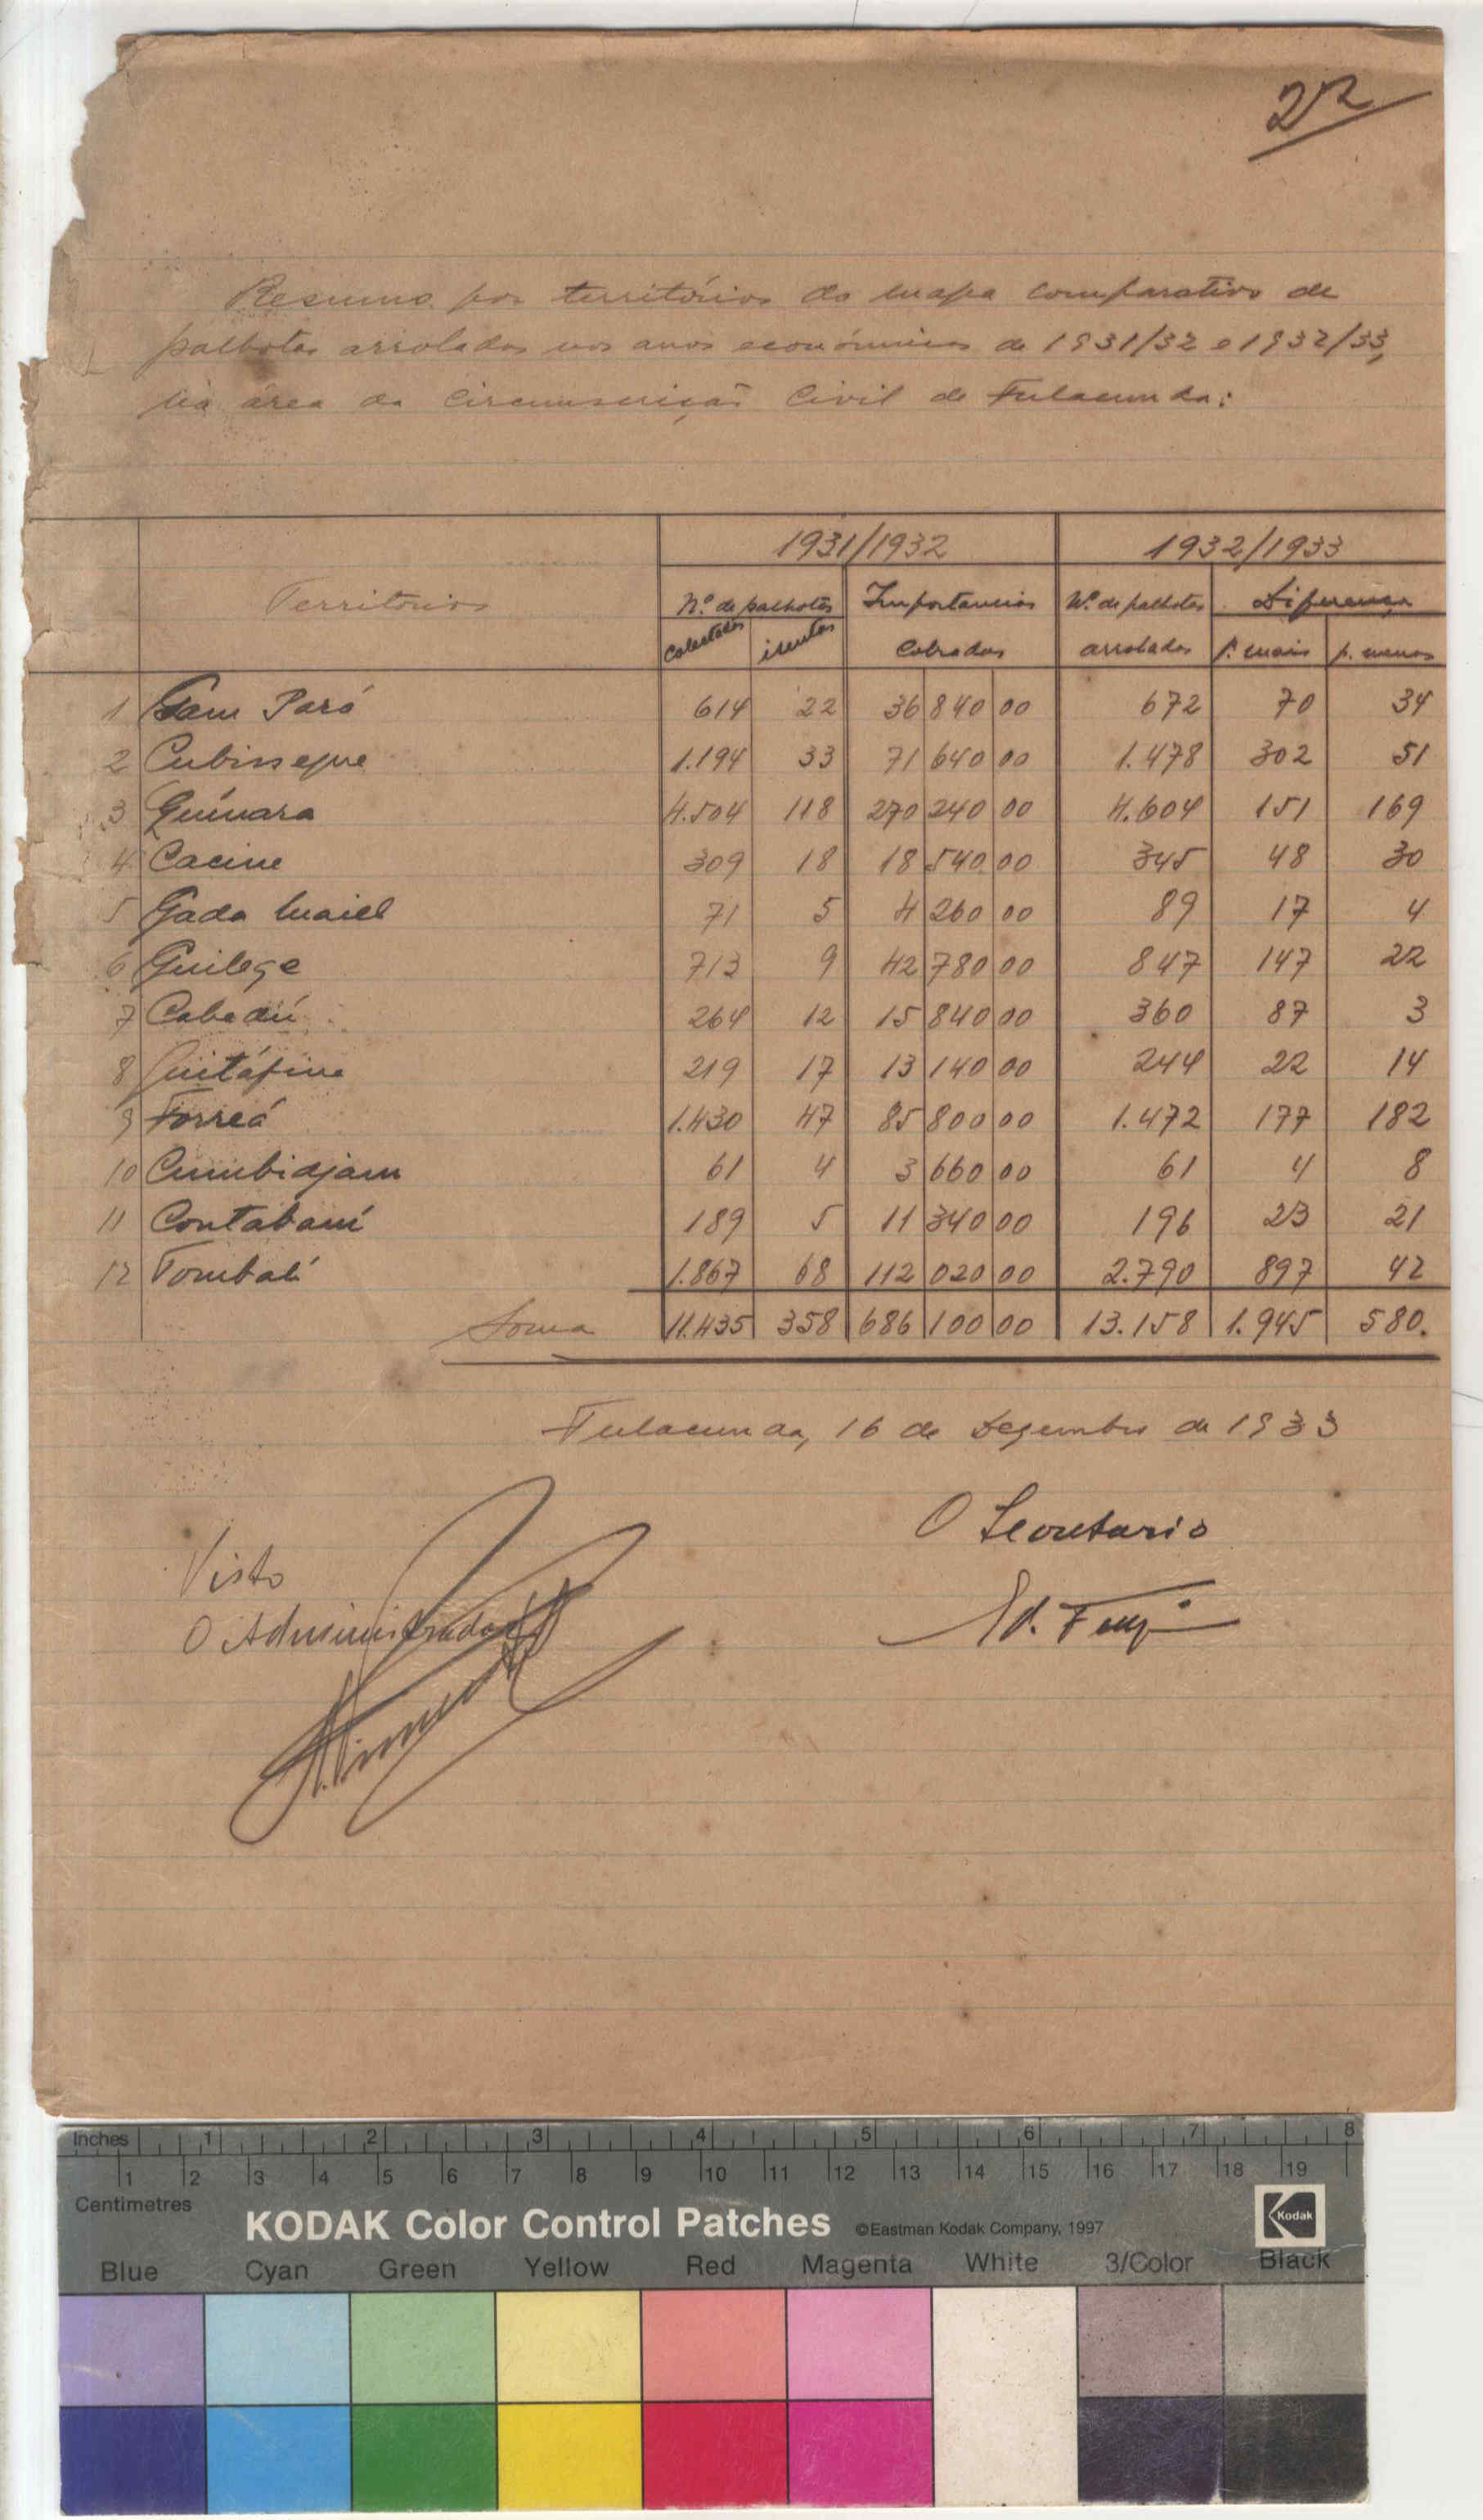 22
Resumo por territórios do mapa comparativo de
palhotas arroladas nos anos económicos de 1931/32 e 1932/33,
na área da Circunscrição Civil de Fulacunda:
1931/1932 1932/1933
Territórios Nº de palhotas Importancias Nº de palhotas Diferença
Colectadas isentas Cobradas arroladas p. mais p. menos
1 Gam Pará 614 22 36 840 00 672 70 34
2 Cubisseque 1.194 33 71 640 00 1.478 302 51
3 Guínara 4.504 118 270 240 00 4.604 151 169
4 Cacine 309 18 18 540 00 345 48 30
5 Gada Mael 71 5 4 260 00 89 17 4
6 Guilege 713 9 42 780 00 847 147 22
7 Cabedú 264 12 15 840 00 360 87 3
8 Quitáfine 219 17 13 140 00 244 22 14
9 Forreá 1.430 47 85 800 00 1.472 177 182
10 Cumbidjam 61 4 3 660 00 61 4 8
11 Contabaní 189 5 11 340 00 196 23 21
12 Tombali 1.867 68 112 020 00 2.790 897 42
Soma 11.435 358 686 100 00 13.158 1.945 580.
Fulacunda, 16 de Dezembro de 1933
O Secretario
Visto
O Administrador
Inches 1 2 3 4 5 6 7 8
1 2 3 4 5 6 7 8 9 10 11 12 13 14 15 16 17 18 19
Centimetres
KODAK Color Control Patches ©Eastman Kodak Company, 1997 Kodak
Blue Cyan Green Yellow Red Magenta White 3/Color Black